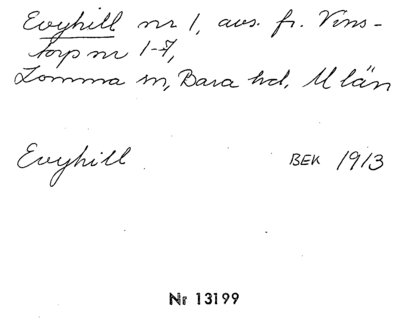 Evyhill nr 1, avs. fr. Vins-
torp nr 1-7,
Lomma sn, Bara hd, M län
Evyhill BEK 1913
Nr 13199